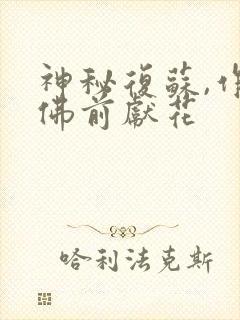 神秘復蘇,作
佛前獻花
哈利法克斯